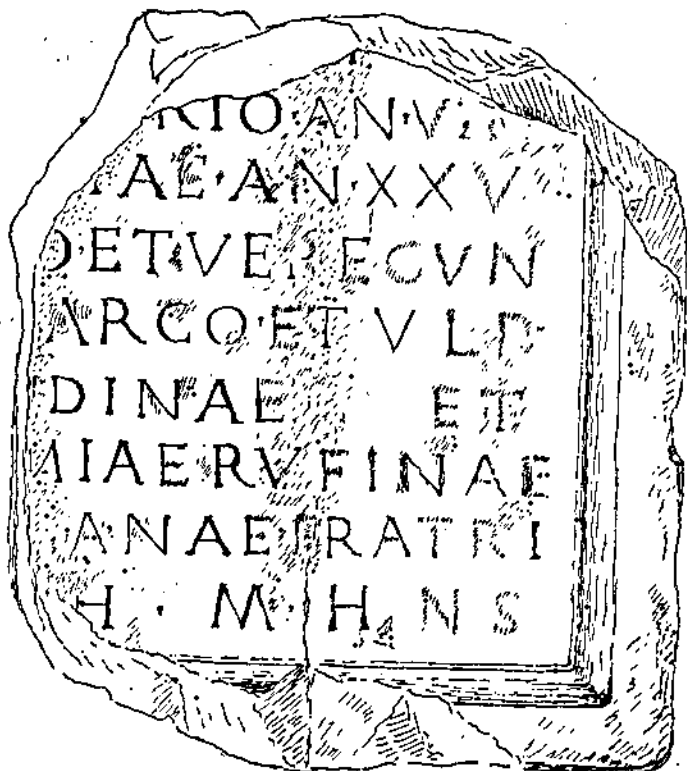 RIO·AN·V
AE·AN·XXV
ET·VERECVN
ARCO·ET VLP
DINAE ET
MIAE RVFINAE
ANAE FRATRI
H · M · H N S